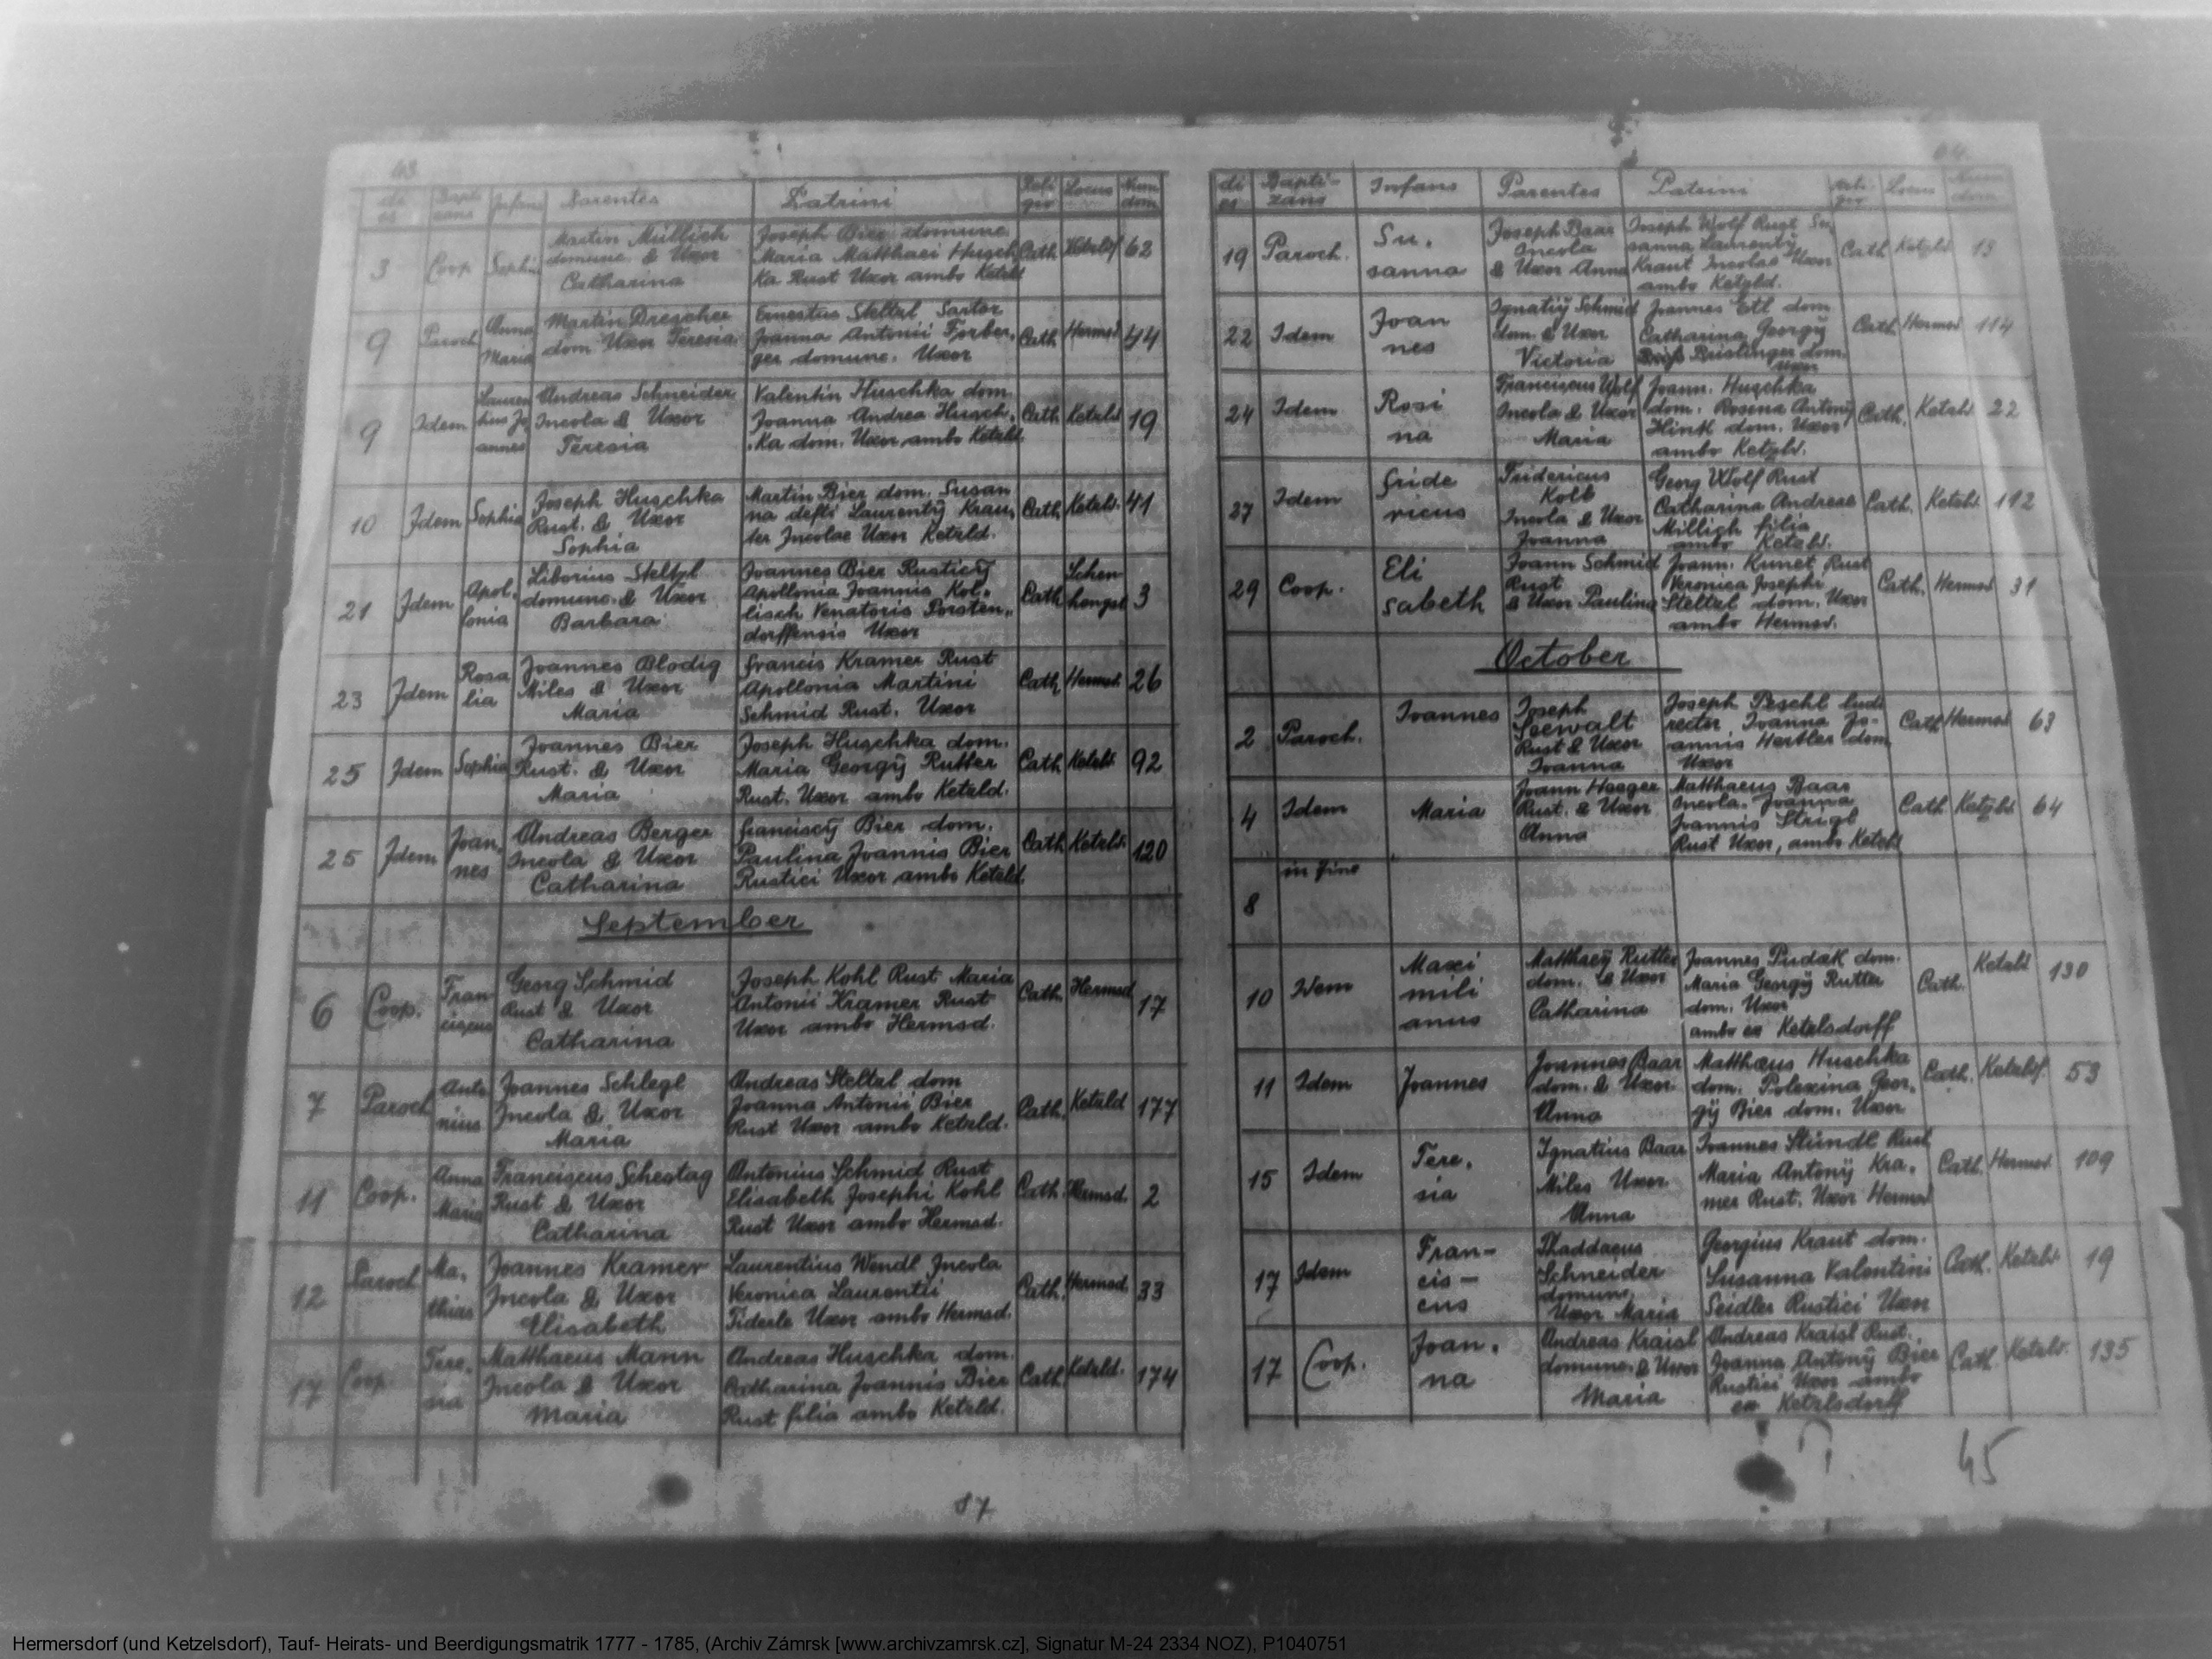 63
di es Bapti zans Infans Parentes Patrini Reli gio Locus Num dom
3 Coop Sophia Martin Müllich domunc. & Uxor Catharina Joseph Bier domunc Maria Matthaei Husch ka Rust Uxor ambo Ketzld Cath Ketzlsf 62
9 Paroch Anna Maria Martin Drescher dom Uxor Teresia Ernestus Steltzl Sartor Joanna Antonii Forber, ger domunc. Uxor Cath Hermsd 44
9 Idem Lauren tius Jo annes Andreas Schneider Incola & Uxor Teresia Valentin Huschka dom. Joanna Andrea Husch, ka dom. Uxor ambo Ketzld. Cath Ketzld 19
10 Idem Sophia Joseph Huschka Rust. & Uxor Sophia Martin Bier dom. Susan na defti Laurentÿ Krau, ter Incolae Uxor Ketzld. Cath Ketzld. 41
21 Idem Apol. lonia Liborius Steltzl domunc. & Uxor Barbara Joannes Bier Rusticÿ Apollonia Joannis Kol„ lisch Venatoris Porsten„ dorffensis Uxor Cath Schen hengst 3
23 Idem Rosa lia Joannes Blodig Miles & Uxor Maria Francis Kramer Rust Apollonia Martini Schmid Rust. Uxor Cath Hermsd. 26
25 Idem Sophia Joannes Bier Rust. & Uxor Maria Joseph Huschka dom. Maria Georgÿ Rutter Rust. Uxor ambo Ketzld. Cath Ketzld 92
25 Idem Joan, nes Andreas Berger Incola & Uxor Catharina Franciscÿ Bier dom. Paulina Joannis Bier Rustici Uxor ambo Ketzld. Cath Ketzld. 120
September
6 Coop. Fran ciscus Georg Schmid Rust & Uxor Catharina Joseph Kohl Rust Maria Antonii Kramer Rust Uxor ambo Hermsd. Cath. Hermsd 17
7 Paroch Anto nius Joannes Schlegl Incola & Uxor Maria Andreas Steltzl dom Joanna Antonii Bier Rust Uxor ambo Ketzld. Cath. Ketzld 177
11 Coop. Anna Maria Franciscus Schestag Rust & Uxor Catharina Antonius Schmid Rust Elisabeth Josephi Kohl Rust Uxor ambo Hermsd. Cath. Hermsd. 2
12 Paroch Ma, thias Joannes Kramer Incola & Uxor Elisabeth Laurentius Wendl Incola Veronica Laurentii Fiderle Uxor ambo Hermsd. Cath. Hermsd 33
17 Coop Tere, sia Matthaeus Mann Incola & Uxor Maria Andreas Huschka dom. Catharina Joannis Bier Rust filia ambo Ketzld. Cath Ketzld. 174
87
64
di es Bapti- zans Infans Parentes Patrini Reli gio Locus Num dom
19 Paroch. Su, sanna Joseph Baar Incola & Uxor Anna Joseph Wolf Rust Su, sanna Laurentÿ Kraut Incolae Uxor ambo Ketzld. Cath Ketzld 13
22 Idem Joan nes Ignatiÿ Schmid dom. & Uxor Victoria Joannes Etl dom Catharina Georgÿ Brislinger dom. Uxor Cath. Hermsd 114
24 Idem Rosi na Franciscus Wolf Incola & Uxor Maria Joann. Huschka dom. Rosina Antonÿ Hink dom. Uxor ambo Ketzld. Cath. Ketzld 22
27 Idem Fride ricus Fridericus Kolb Incola & Uxor Joanna Georg Wolf Rust Catharina Andreae Millich filia ambo Ketzld. Cath. Ketzld 112
29 Coop. Eli sabeth Joann Schmid Rust & Uxor Paulina Joann. Kunet Rust Veronica Josephi Steltzl dom. Uxor ambo Hermsd. Cath. Hermsd 31
October
2 Paroch. Joannes Joseph Seewalt Rust & Uxor Joanna Joseph Peschl ludi rector Joanna Jo- annis Hertler dom. Uxor Cath Hermsd 63
4 Idem Maria Joann Haager Rust. & Uxor Anna Matthaeus Baar Incola. Joanna Joannis Strigl Rust Uxor, ambo Ketzld Cath Ketzld 64
8 in fine
10 Idem Maxi mili anus Matthaeÿ Rutter dom. & Uxor Catharina Joannes Pudak dom. Maria Georgÿ Rutter dom. Uxor ambo ex Ketzlsdorff Cath. Ketzld 130
11 Idem Joannes Joannes Baar dom. & Uxor Anna Matthaeus Huschka dom. Polexina Geor, gÿ Bier dom. Uxor Cath. Ketzlsf. 53
15 Idem Tere, sia Ignatius Baar Miles Uxor Anna Joannes Stündl Rust Maria Antonÿ Kra, mer Rust. Uxor Hermsd Cath. Hermsd. 109
17 Idem Fran- cis- cus Thaddaeus Schneider domunc Uxor Maria Georgius Kraut dom. Susanna Valentini Seidler Rustici Uxor Cath. Ketzld 19
17 Coop. Joan, na Andreas Kraisl domunc. & Uxor Maria Andreas Kraisl Rust. Joanna Antonÿ Bier Rustici Uxor ambo ex Ketzlsdorff Cath. Ketzld. 135
45
Hermersdorf (und Ketzelsdorf), Tauf- Heirats- und Beerdigungsmatrik 1777 - 1785, (Archiv Zámrsk [www.archivzamrsk.cz], Signatur M-24 2334 NOZ), P1040751